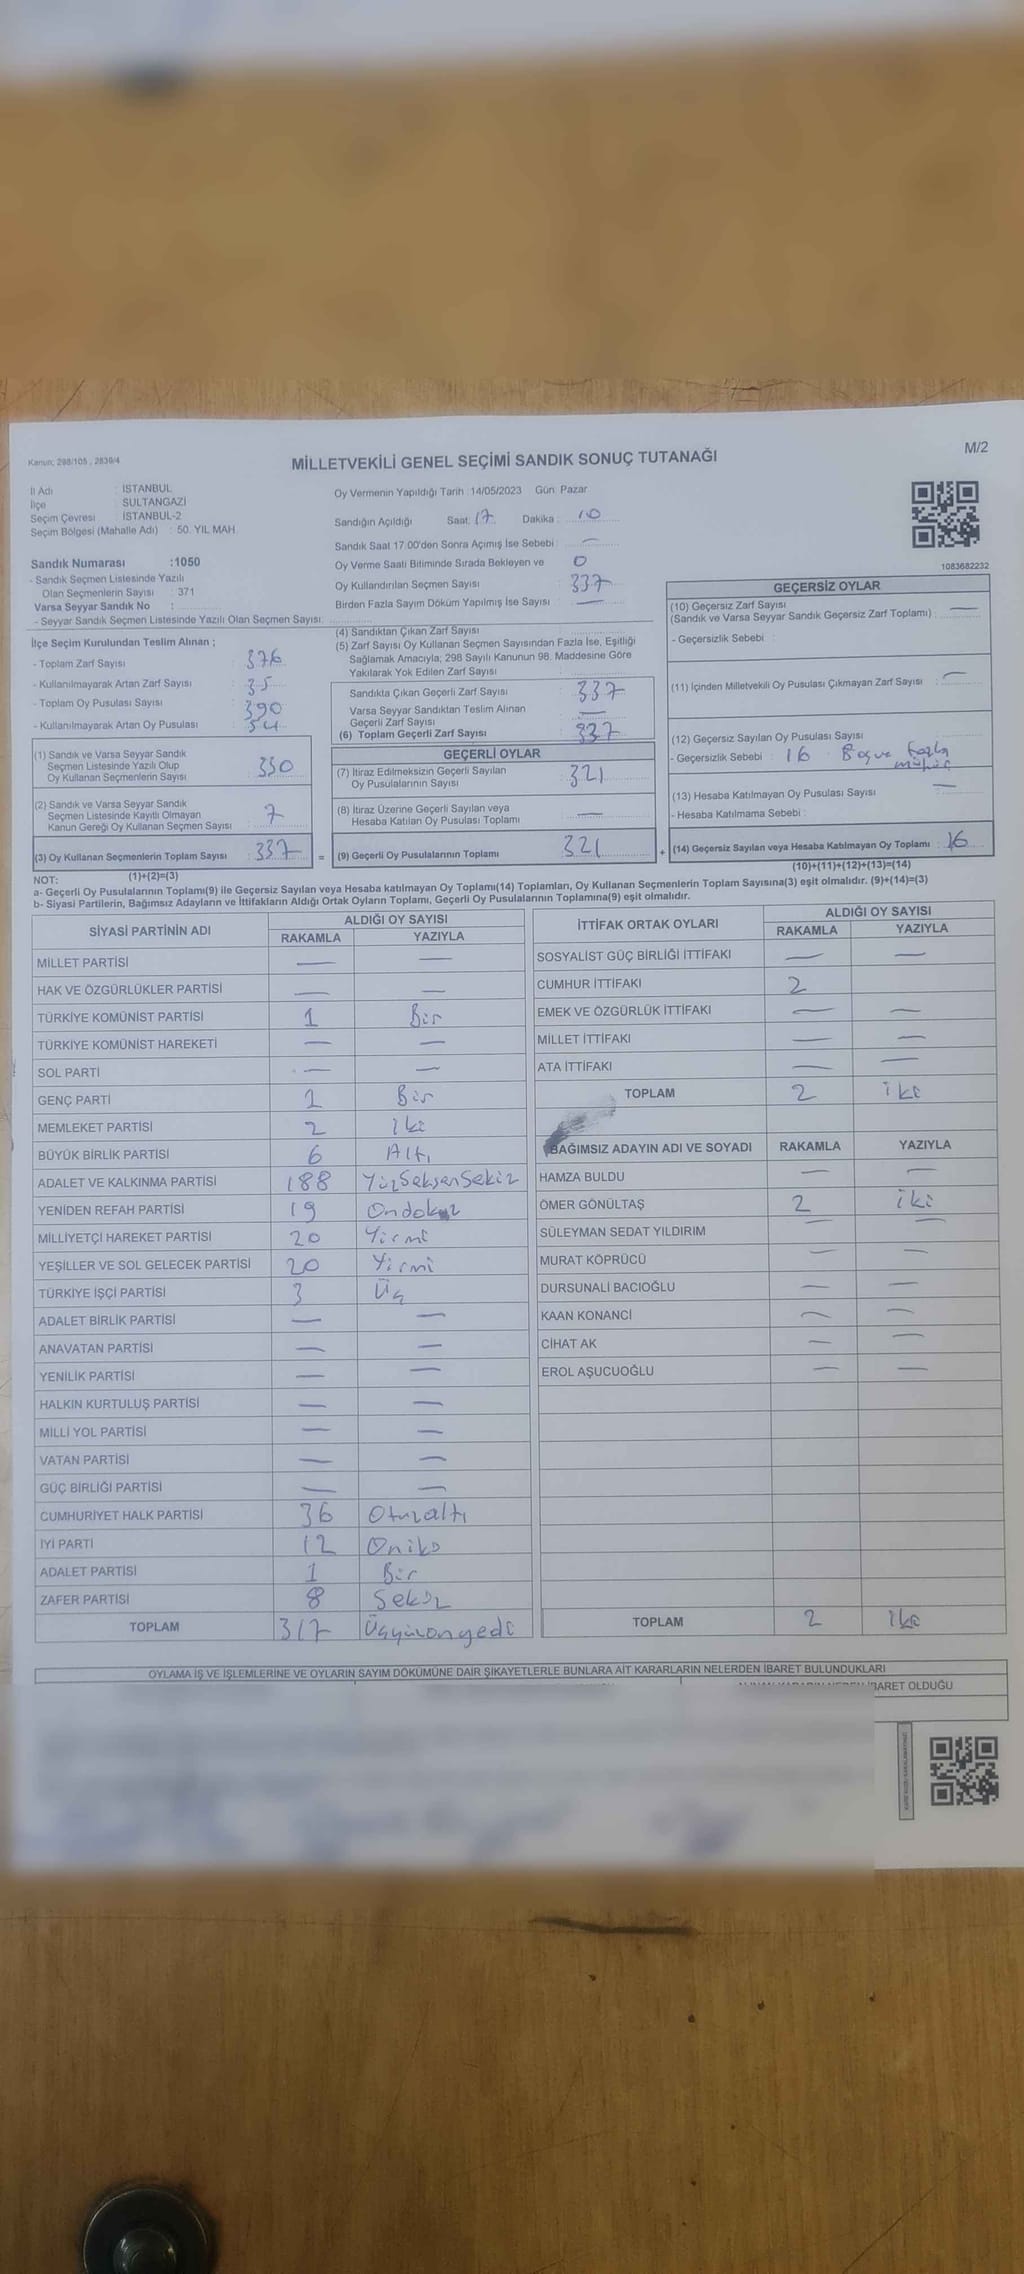 Kanun: 298/105 , 2839/4
MİLLETVEKİLİ GENEL SEÇİMİ SANDIK SONUÇ TUTANAĞI
M/2
İl Adı : İSTANBUL
İlçe : SULTANGAZİ
Seçim Çevresi : İSTANBUL-2
Seçim Bölgesi (Mahalle Adı) : 50. YIL MAH
Sandık Numarası :1050
- Sandık Seçmen Listesinde Yazılı
Olan Seçmenlerin Sayısı : 371
Varsa Seyyar Sandık No :
- Seyyar Sandık Seçmen Listesinde Yazılı Olan Seçmen Sayısı:
Oy Vermenin Yapıldığı Tarih :14/05/2023 Gün: Pazar
Sandığın Açıldığı Saat: 17 Dakika : 10
Sandık Saat 17.00'den Sonra Açımış İse Sebebi : —
Oy Verme Saati Bitiminde Sırada Bekleyen ve 0
Oy Kullandırılan Seçmen Sayısı 337
Birden Fazla Sayım Döküm Yapılmış İse Sayısı —
1083682232
İlçe Seçim Kurulundan Teslim Alınan ;
- Toplam Zarf Sayısı : 376
- Kullanılmayarak Artan Zarf Sayısı : 35
- Toplam Oy Pusulası Sayısı : 390
- Kullanılmayarak Artan Oy Pusulası : 54
(1) Sandık ve Varsa Seyyar Sandık
Seçmen Listesinde Yazılı Olup
Oy Kullanan Seçmenlerin Sayısı : 330
(2) Sandık ve Varsa Seyyar Sandık
Seçmen Listesinde Kayıtlı Olmayan
Kanun Gereği Oy Kullanan Seçmen Sayısı : 7
(3) Oy Kullanan Seçmenlerin Toplam Sayısı : 337 =
(1)+(2)=(3)
(4) Sandıktan Çıkan Zarf Sayısı
(5) Zarf Sayısı Oy Kullanan Seçmen Sayısından Fazla İse, Eşitliği
Sağlamak Amacıyla; 298 Sayılı Kanunun 98. Maddesine Göre
Yakılarak Yok Edilen Zarf Sayısı
Sandıkta Çıkan Geçerli Zarf Sayısı : 337
Varsa Seyyar Sandıktan Teslim Alınan
Geçerli Zarf Sayısı : —
(6) Toplam Geçerli Zarf Sayısı : 337
GEÇERLİ OYLAR
(7) İtiraz Edilmeksizin Geçerli Sayılan
Oy Pusulalarının Sayısı : 321
(8) İtiraz Üzerine Geçerli Sayılan veya
Hesaba Katılan Oy Pusulası Toplamı : —
(9) Geçerli Oy Pusulalarının Toplamı : 321 +
GEÇERSİZ OYLAR
(10) Geçersiz Zarf Sayısı
(Sandık ve Varsa Seyyar Sandık Geçersiz Zarf Toplamı) : —
- Geçersizlik Sebebi :
(11) İçinden Milletvekili Oy Pusulası Çıkmayan Zarf Sayısı : —
(12) Geçersiz Sayılan Oy Pusulası Sayısı :
- Geçersizlik Sebebi : 16 Boş ve fazla
mühür
(13) Hesaba Katılmayan Oy Pusulası Sayısı : —
- Hesaba Katılmama Sebebi :
(14) Geçersiz Sayılan veya Hesaba Katılmayan Oy Toplamı : 16
(10)+(11)+(12)+(13)=(14)
NOT:
a- Geçerli Oy Pusulalarının Toplamı(9) ile Geçersiz Sayılan veya Hesaba katılmayan Oy Toplamı(14) Toplamları, Oy Kullanan Seçmenlerin Toplam Sayısına(3) eşit olmalıdır. (9)+(14)=(3)
b- Siyasi Partilerin, Bağımsız Adayların ve İttifakların Aldığı Ortak Oyların Toplamı, Geçerli Oy Pusulalarının Toplamına(9) eşit olmalıdır.
SİYASİ PARTİNİN ADI ALDIĞI OY SAYISI
RAKAMLA YAZIYLA
MİLLET PARTİSİ — —
HAK VE ÖZGÜRLÜKLER PARTİSİ — —
TÜRKİYE KOMÜNİST PARTİSİ 1 Bir
TÜRKİYE KOMÜNİST HAREKETİ — —
SOL PARTİ — —
GENÇ PARTİ 1 Bir
MEMLEKET PARTİSİ 2 iki
BÜYÜK BİRLİK PARTİSİ 6 Altı
ADALET VE KALKINMA PARTİSİ 188 YüzSeksenSekiz
YENİDEN REFAH PARTİSİ 19 Ondokuz
MİLLİYETÇİ HAREKET PARTİSİ 20 Yirmi
YEŞİLLER VE SOL GELECEK PARTİSİ 20 Yirmi
TÜRKİYE İŞÇİ PARTİSİ 3 Üç
ADALET BİRLİK PARTİSİ — —
ANAVATAN PARTİSİ — —
YENİLİK PARTİSİ — —
HALKIN KURTULUŞ PARTİSİ — —
MİLLİ YOL PARTİSİ — —
VATAN PARTİSİ — —
GÜÇ BİRLİĞİ PARTİSİ — —
CUMHURİYET HALK PARTİSİ 36 Otuzaltı
İYİ PARTİ 12 Oniki
ADALET PARTİSİ 1 Bir
ZAFER PARTİSİ 8 Sekiz
TOPLAM 317 Üçyüzonyedi
İTTİFAK ORTAK OYLARI ALDIĞI OY SAYISI
RAKAMLA YAZIYLA
SOSYALİST GÜÇ BİRLİĞİ İTTİFAKI — —
CUMHUR İTTİFAKI 2
EMEK VE ÖZGÜRLÜK İTTİFAKI — —
MİLLET İTTİFAKI — —
ATA İTTİFAKI — —
TOPLAM 2 iki
BAĞIMSIZ ADAYIN ADI VE SOYADI RAKAMLA YAZIYLA
HAMZA BULDU — —
ÖMER GÖNÜLTAŞ 2 iki
SÜLEYMAN SEDAT YILDIRIM — —
MURAT KÖPRÜCÜ — —
DURSUNALİ BACIOĞLU — —
KAAN KONANCİ — —
CİHAT AK — —
EROL AŞUCUOĞLU — —
TOPLAM 2 iki
OYLAMA İŞ VE İŞLEMLERİNE VE OYLARIN SAYIM DÖKÜMÜNE DAİR ŞİKAYETLERLE BUNLARA AİT KARARLARIN NELERDEN İBARET BULUNDUKLARI
OLDUĞU